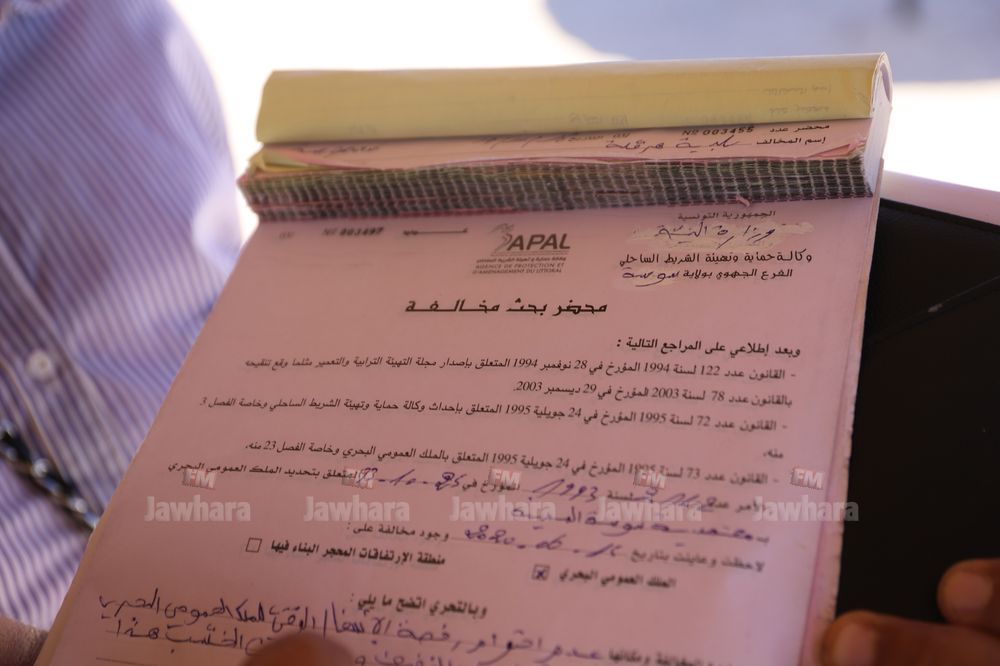 محضر عدد Nº 003455
إسم المخالف
Nº 003497
الجمهورية التونسية
وزارة البيئة
وكالة حماية وتهيئة الشريط الساحلي
الفرع الجهوي بولاية سوسة
APAL
وكالة حماية وتهيئة الشريط الساحلي
AGENCE DE PROTECTION ET
D'AMÉNAGEMENT DU LITTORAL
محضر بحث مخالفة
وبعد إطلاعي على المراجع التالية :
- القانون عدد 122 لسنة 1994 المؤرخ في 28 نوفمبر 1994 المتعلق بإصدار مجلة التهيئة الترابية والتعمير مثلما وقع تنقيحه
بالقانون عدد 78 لسنة 2003 المؤرخ في 29 ديسمبر 2003.
- القانون عدد 72 لسنة 1995 المؤرخ في 24 جويلية 1995 المتعلق بإحداث وكالة حماية وتهيئة الشريط الساحلي وخاصة الفصل 3
منه.
- القانون عدد 73 لسنة 1995 المؤرخ في 24 جويلية 1995 المتعلق بالملك العمومي البحري وخاصة الفصل 23 منه.
- الأمر عدد لسنة 1993 المؤرخ في المتعلق بتحديد الملك العمومي البحري
بـ سوسة
لاحظت وعاينت بتاريخ وجود مخالفة على :
الملك العمومي البحري ☒ منطقة الإرتفاقات المحجر البناء فيها ☐
وبالتحري اتضح ما يلي :
عدم احترام رخصة الوقتي للملك العمومي البحري
هذا
FM Jawhara FM Jawhara FM Jawhara FM Jawhara FM Jawhara